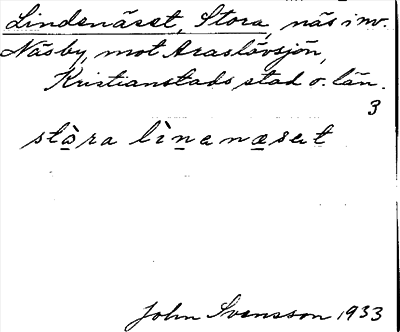 Lindenäset, Stora, näs i nv.
Näsby, mot Araslövsjön,
Kristianstads stad o. län.
3
stòra lìnenæsət
John Svensson 1933